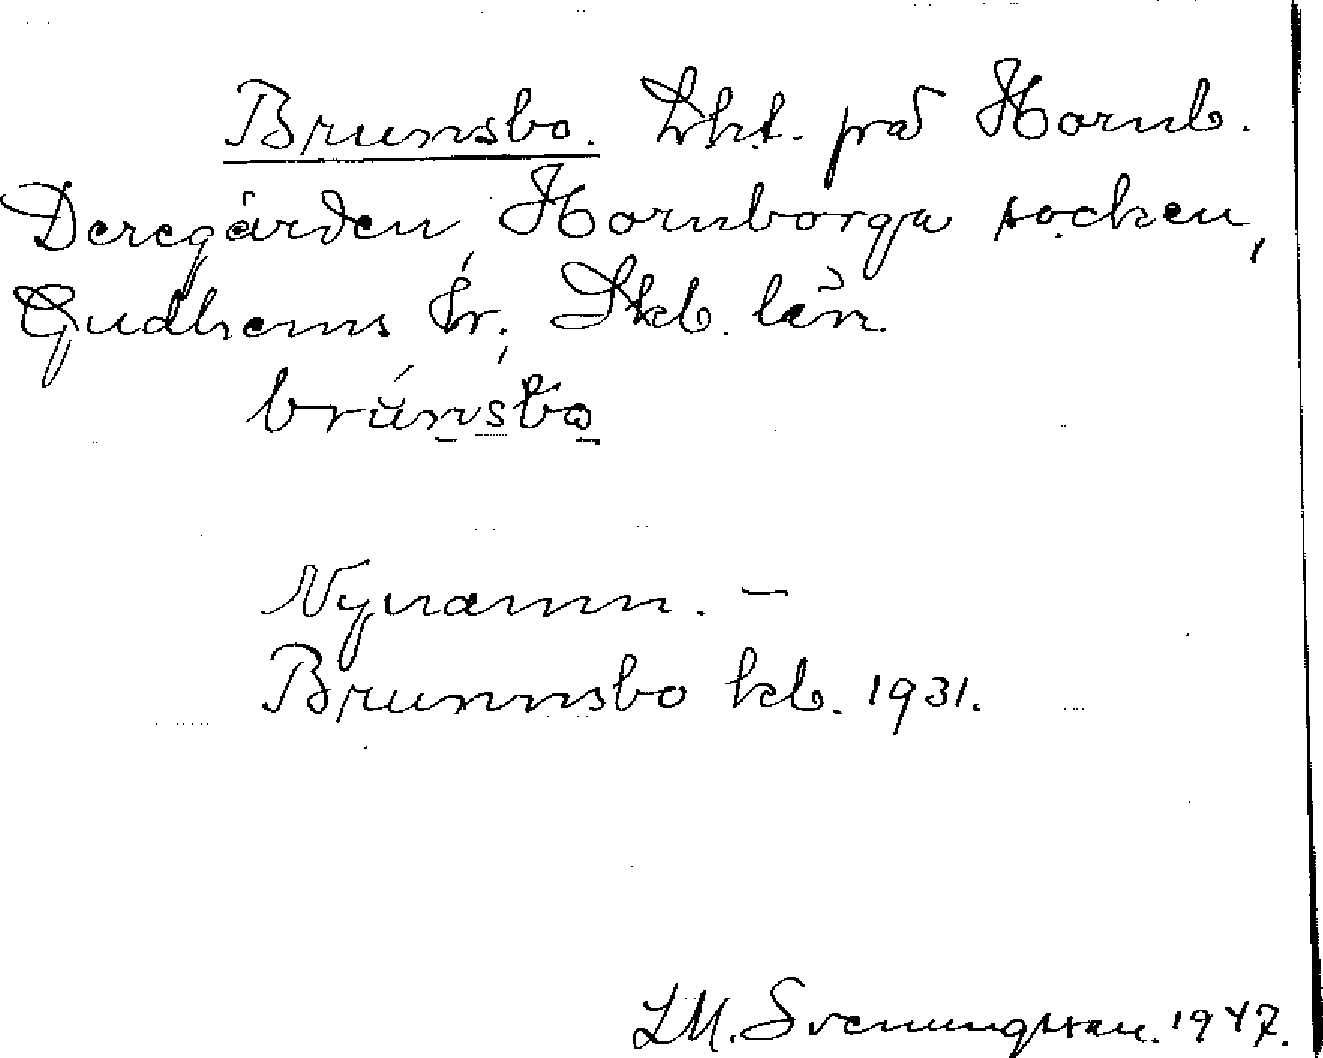 Brunsbo. Lht. på Hornb.
Deregården, Hornborga socken,
Gudhems hr, Skb. län.
brúnsbo
Nynamn. —
Brunnsbo kb. 1931.
LM. Svenungsson. 1947.